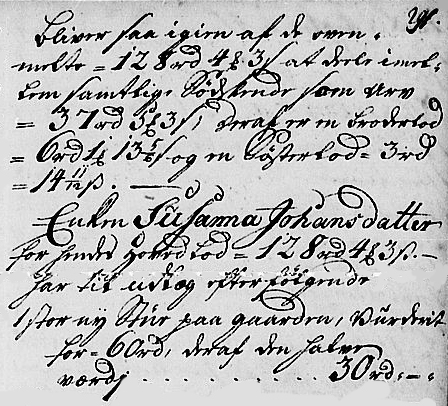 291.
bliver saa igien af de oven-
melte = 128 rd 4 ß 3 s at deele imel-
lem samtlige Södskende som Arv
= 37 rd 3 ß 3 s, deraf er en broderlod
= 6 rd 1 ß 13 5/6 s og en Sösterlod = 3 rd
= 14 11/12 s. —
Enken Susanna Johansdatter
for hendes Hovedlod = 128 rd 4 ß 3 s. —
har til udlæg efterfölgende
1 stor ny Stue paa gaarden, Vurderit
for = 60 rd, deraf den halve
værdj . . . . . . . . . . 30 rd : - : -